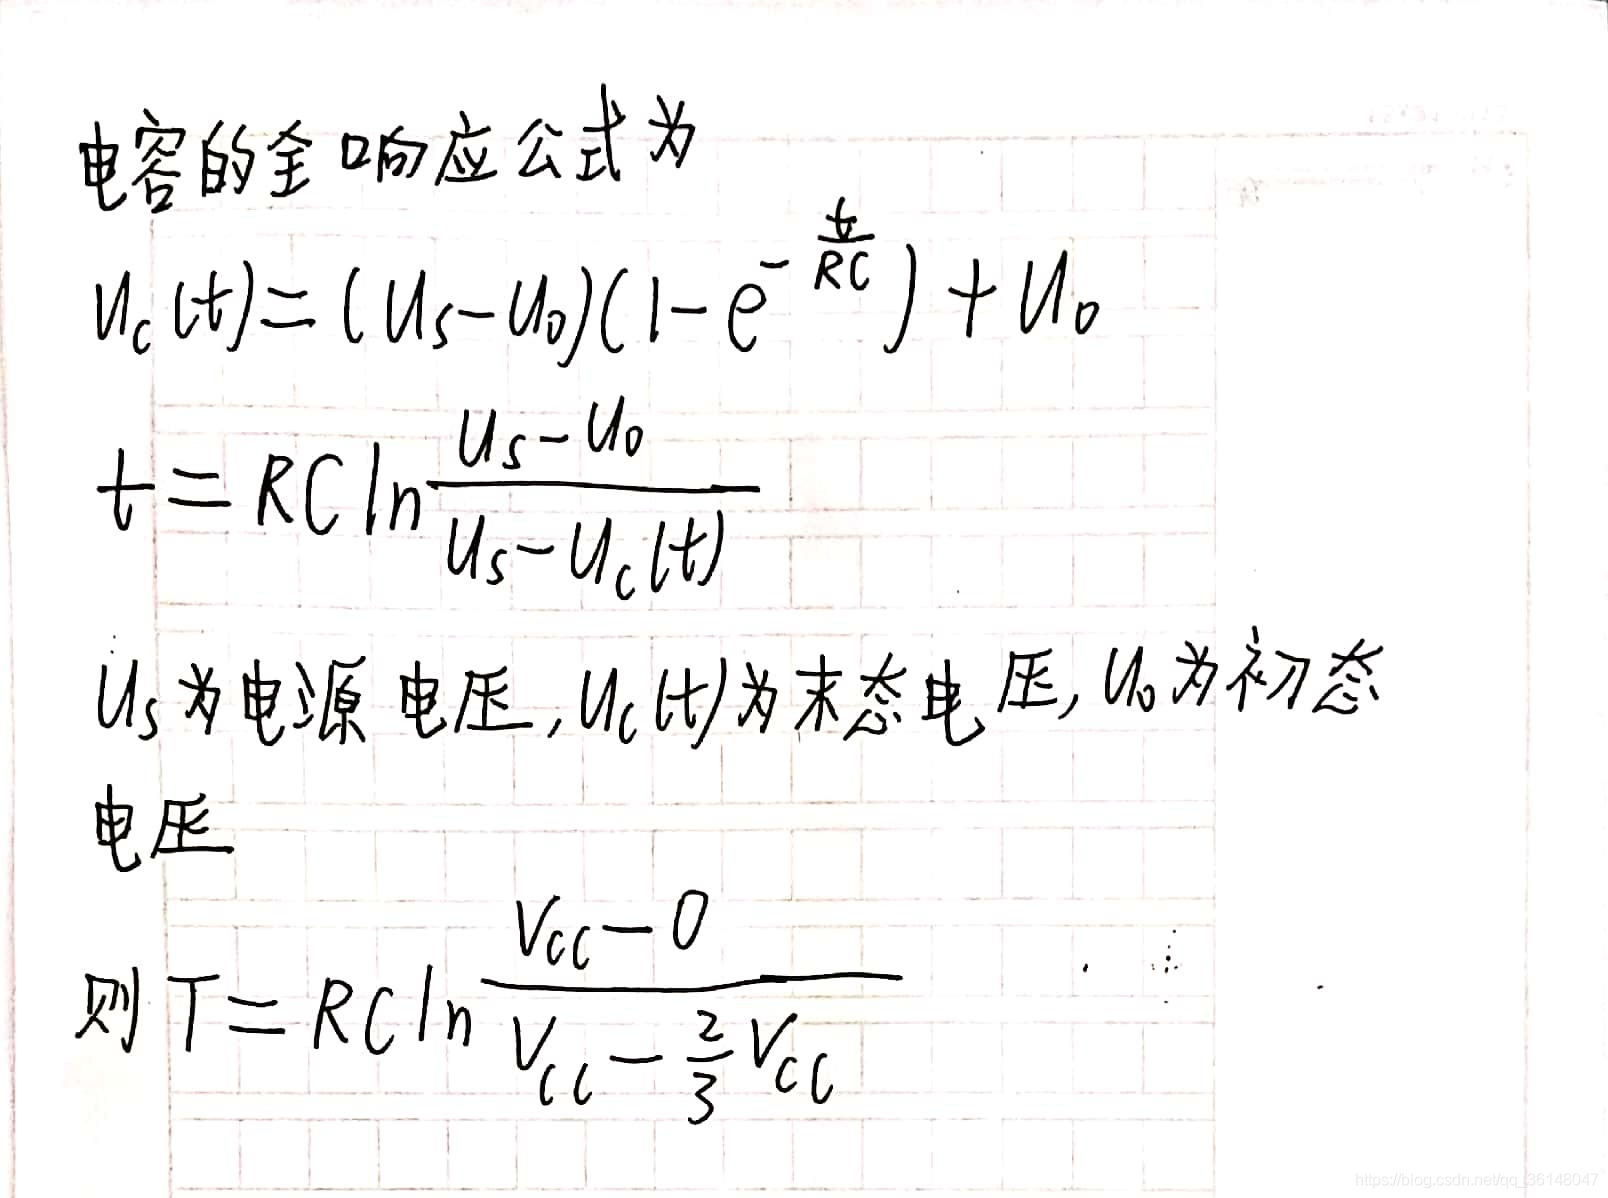 电容的全响应公式为
u_c(t)=(u_s-u_0)(1-e^{-\frac{t}{RC}})+u_0
t=RC ln\frac{u_s-u_0}{u_s-u_c(t)}
u_s为电源电压,u_c(t)为末态电压,u_0为初态
电压
则T=RC ln\frac{V_{CC}-0}{V_{CC}-\frac{2}{3}V_{CC}}
https://blog.csdn.net/qq_36148047